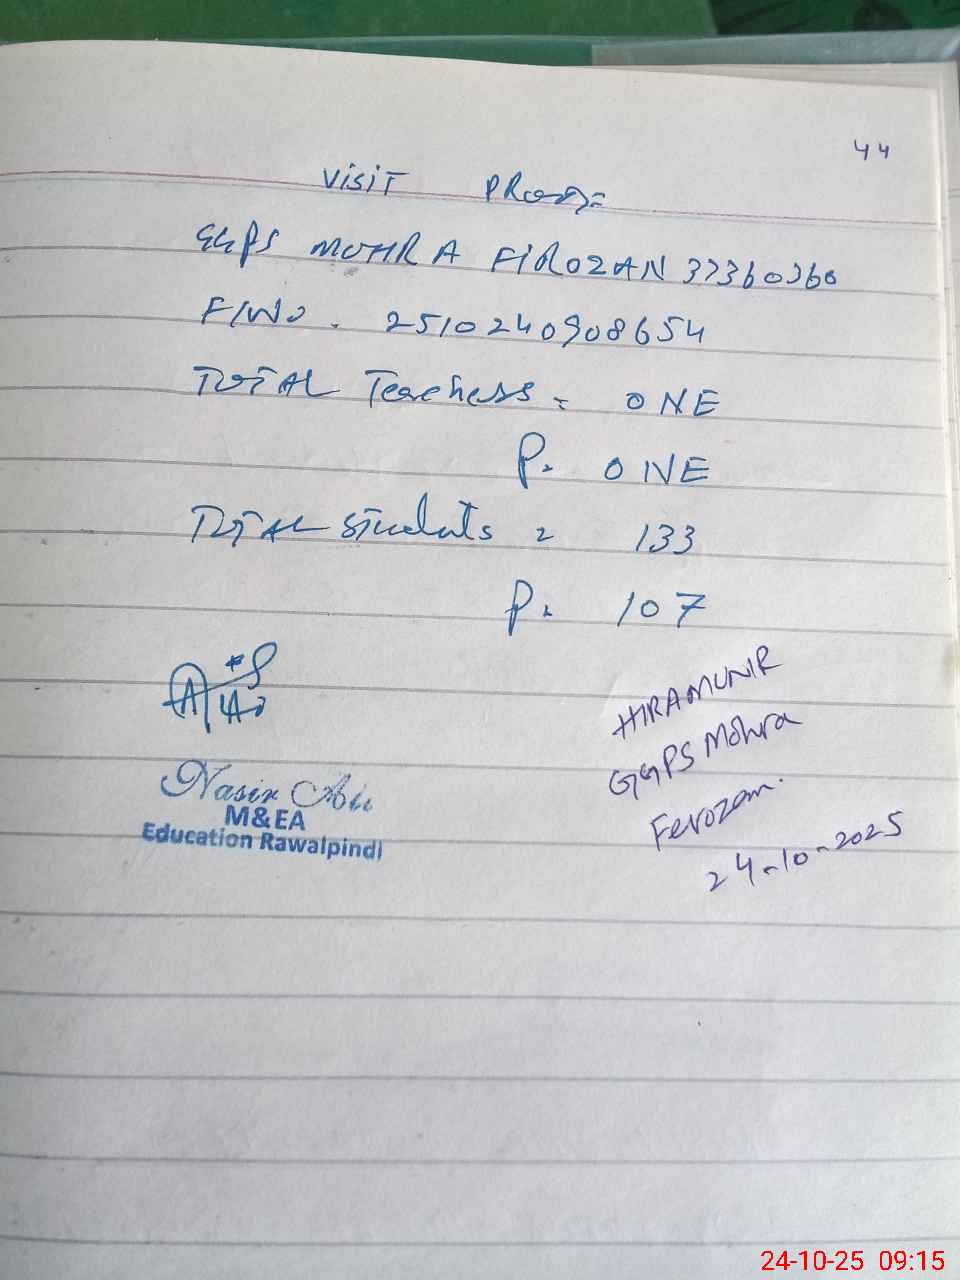 44
VISIT PROOF=
GGPS MOHRA FIROZAN 37360360
F/NO. 2510240908654
TOTAL Teachers = ONE
P. ONE
TOTAL Students = 133
P. 107
HIRA MUNIR
GGPS Mohra
Ferozan.
24-10-2025
Nasir Ali
M&EA
Education Rawalpindi
24-10-25 09:15